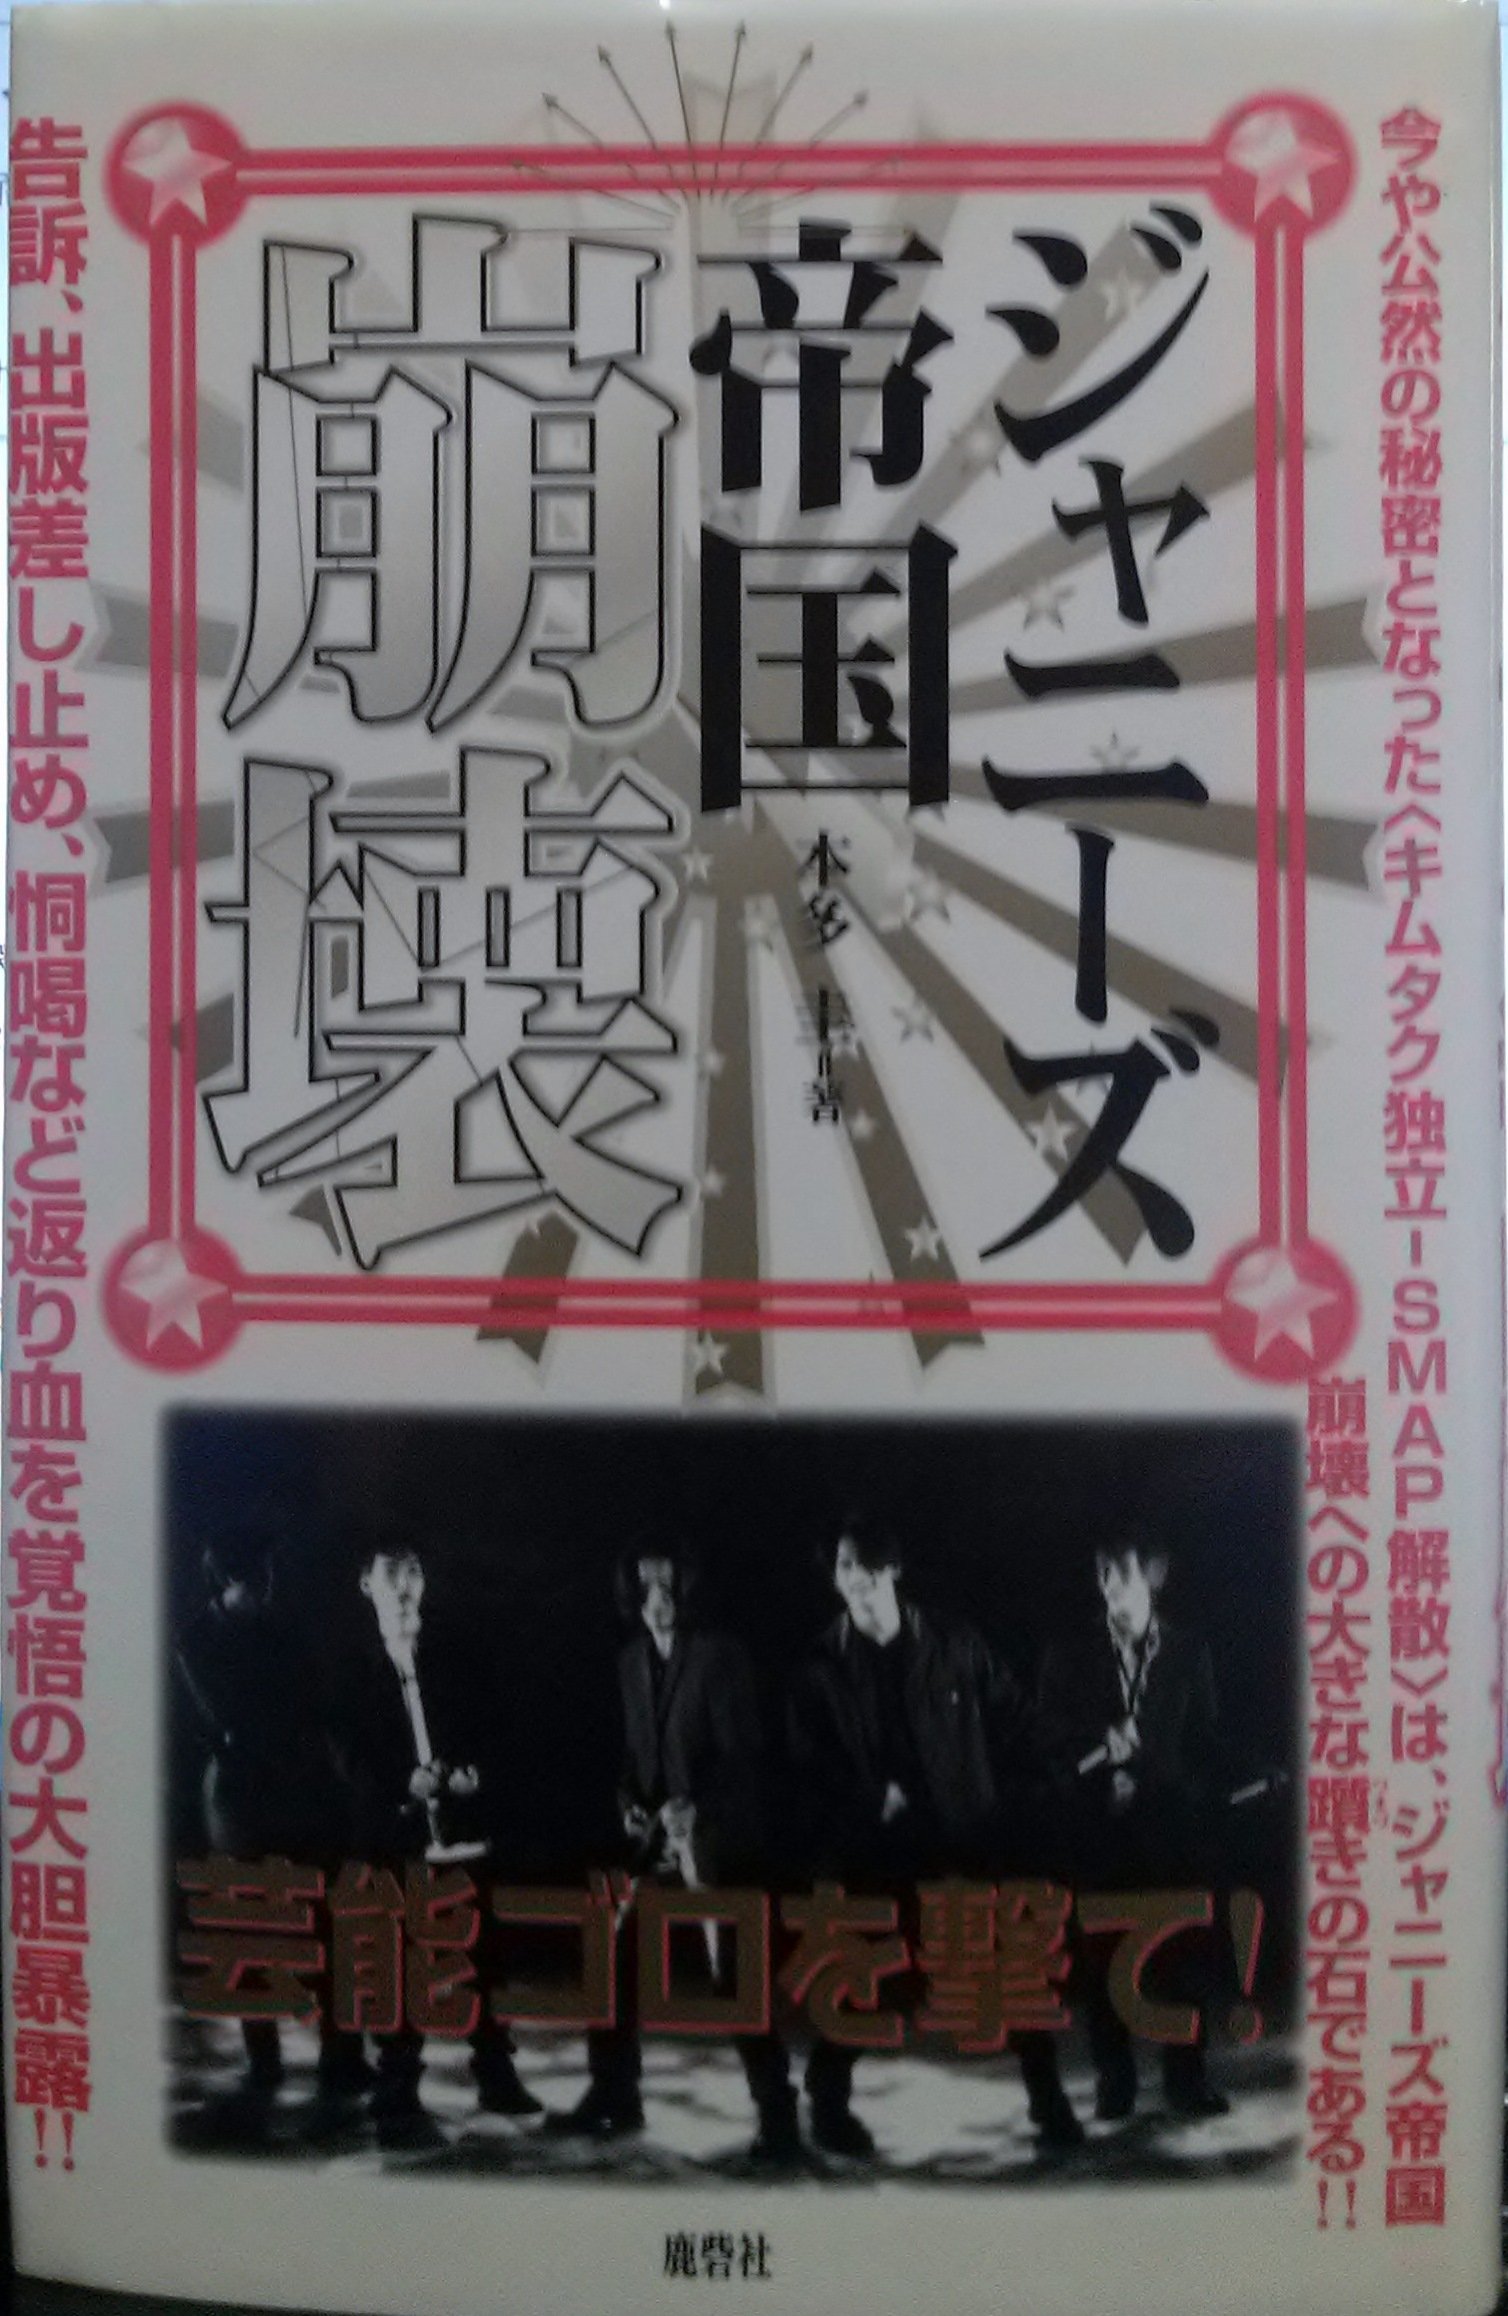 今や公然の秘密となった〈キムタク独立-SMAP解散〉は、ジャニーズ帝国
崩壊への大きな躓きの石である!!
ジャニーズ
帝国
崩壊
本多 圭著
告訴、出版差し止め、恫喝など返り血を覚悟の大胆暴露!!
芸能ゴロを撃て!
鹿砦社